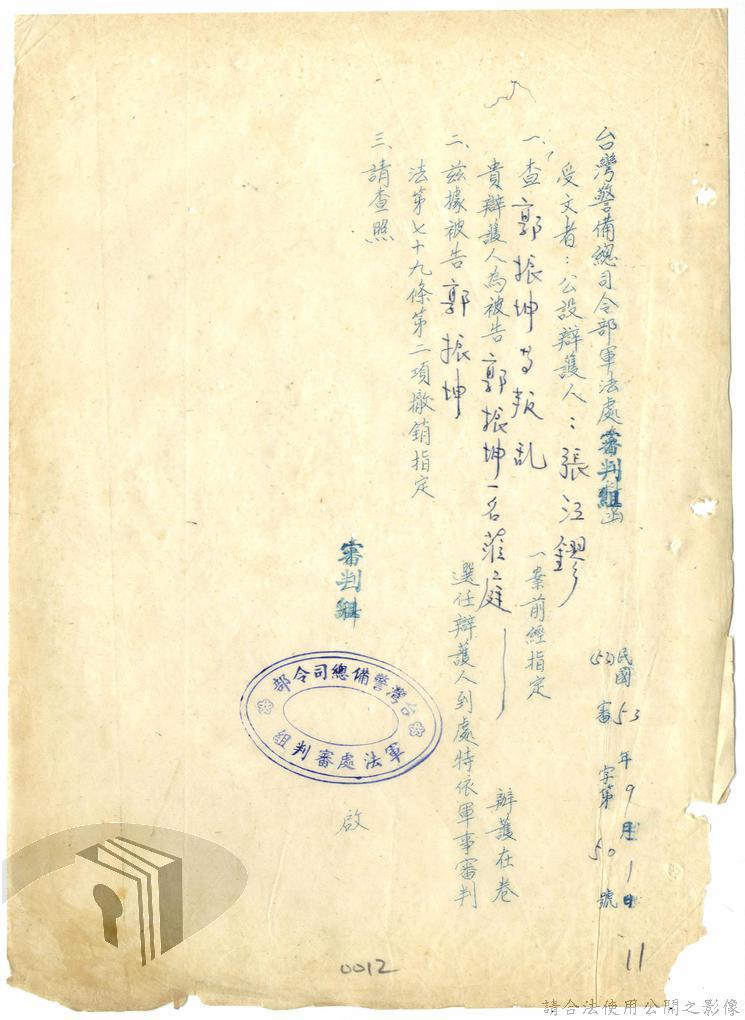 台灣警備總司令部軍法處審判組函
民國53年9月1日
(53)審字第50號
受文者：公設辯護人：張江鏐
一、查郭振坤等叛乱一案前經指定
貴辯護人為被告郭振坤一名蒞庭辯護在卷
二、茲據被告郭振坤選任辯護人到處特依軍事審判
法第七十九條第二項撤銷指定
三、請查照
審判組
啟
台灣警備總司令部
軍法處審判組
11
0012
請合法使用公開之影像